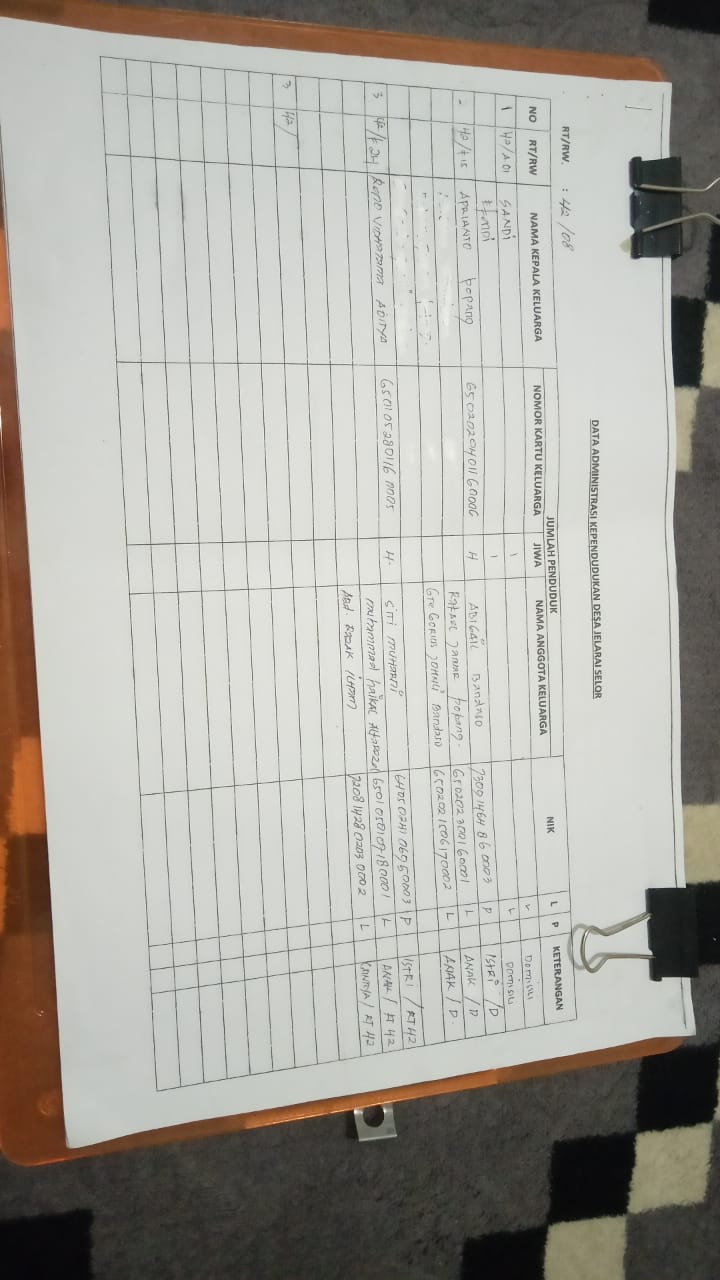 DATA ADMINISTRASI KEPENDUDUKAN DESA JELARAI SELOR
RT/RW. : 42/08
NO RT/RW NAMA KEPALA KELUARGA JUMLAH PENDUDUK NIK L P KETERANGAN
NOMOR KARTU KELUARGA JIWA NAMA ANGGOTA KELUARGA
1 42/A01 SANDi 1 L Domisili
EfENDi 1 L Domisili
42/E15 APRIANTO Popang 6502020401160006 4 ABIGAIL Bandaso P ISTRI /D
Popang. 650202300160001 L ANAK /D
GreGorius JOHNLi Bandaso 6502021506170002 L ANAK / D.
3 42/E24 ADITYA 6501052801160005 4. SITI MUHARNI 6405024106950003 P ISTRI / RT 42
muhammad haikal 6501050107180001 L ANAK / RT 42
Abd. RAZAK (LHAM) 7208142802030002 L / RT 42
3 42/